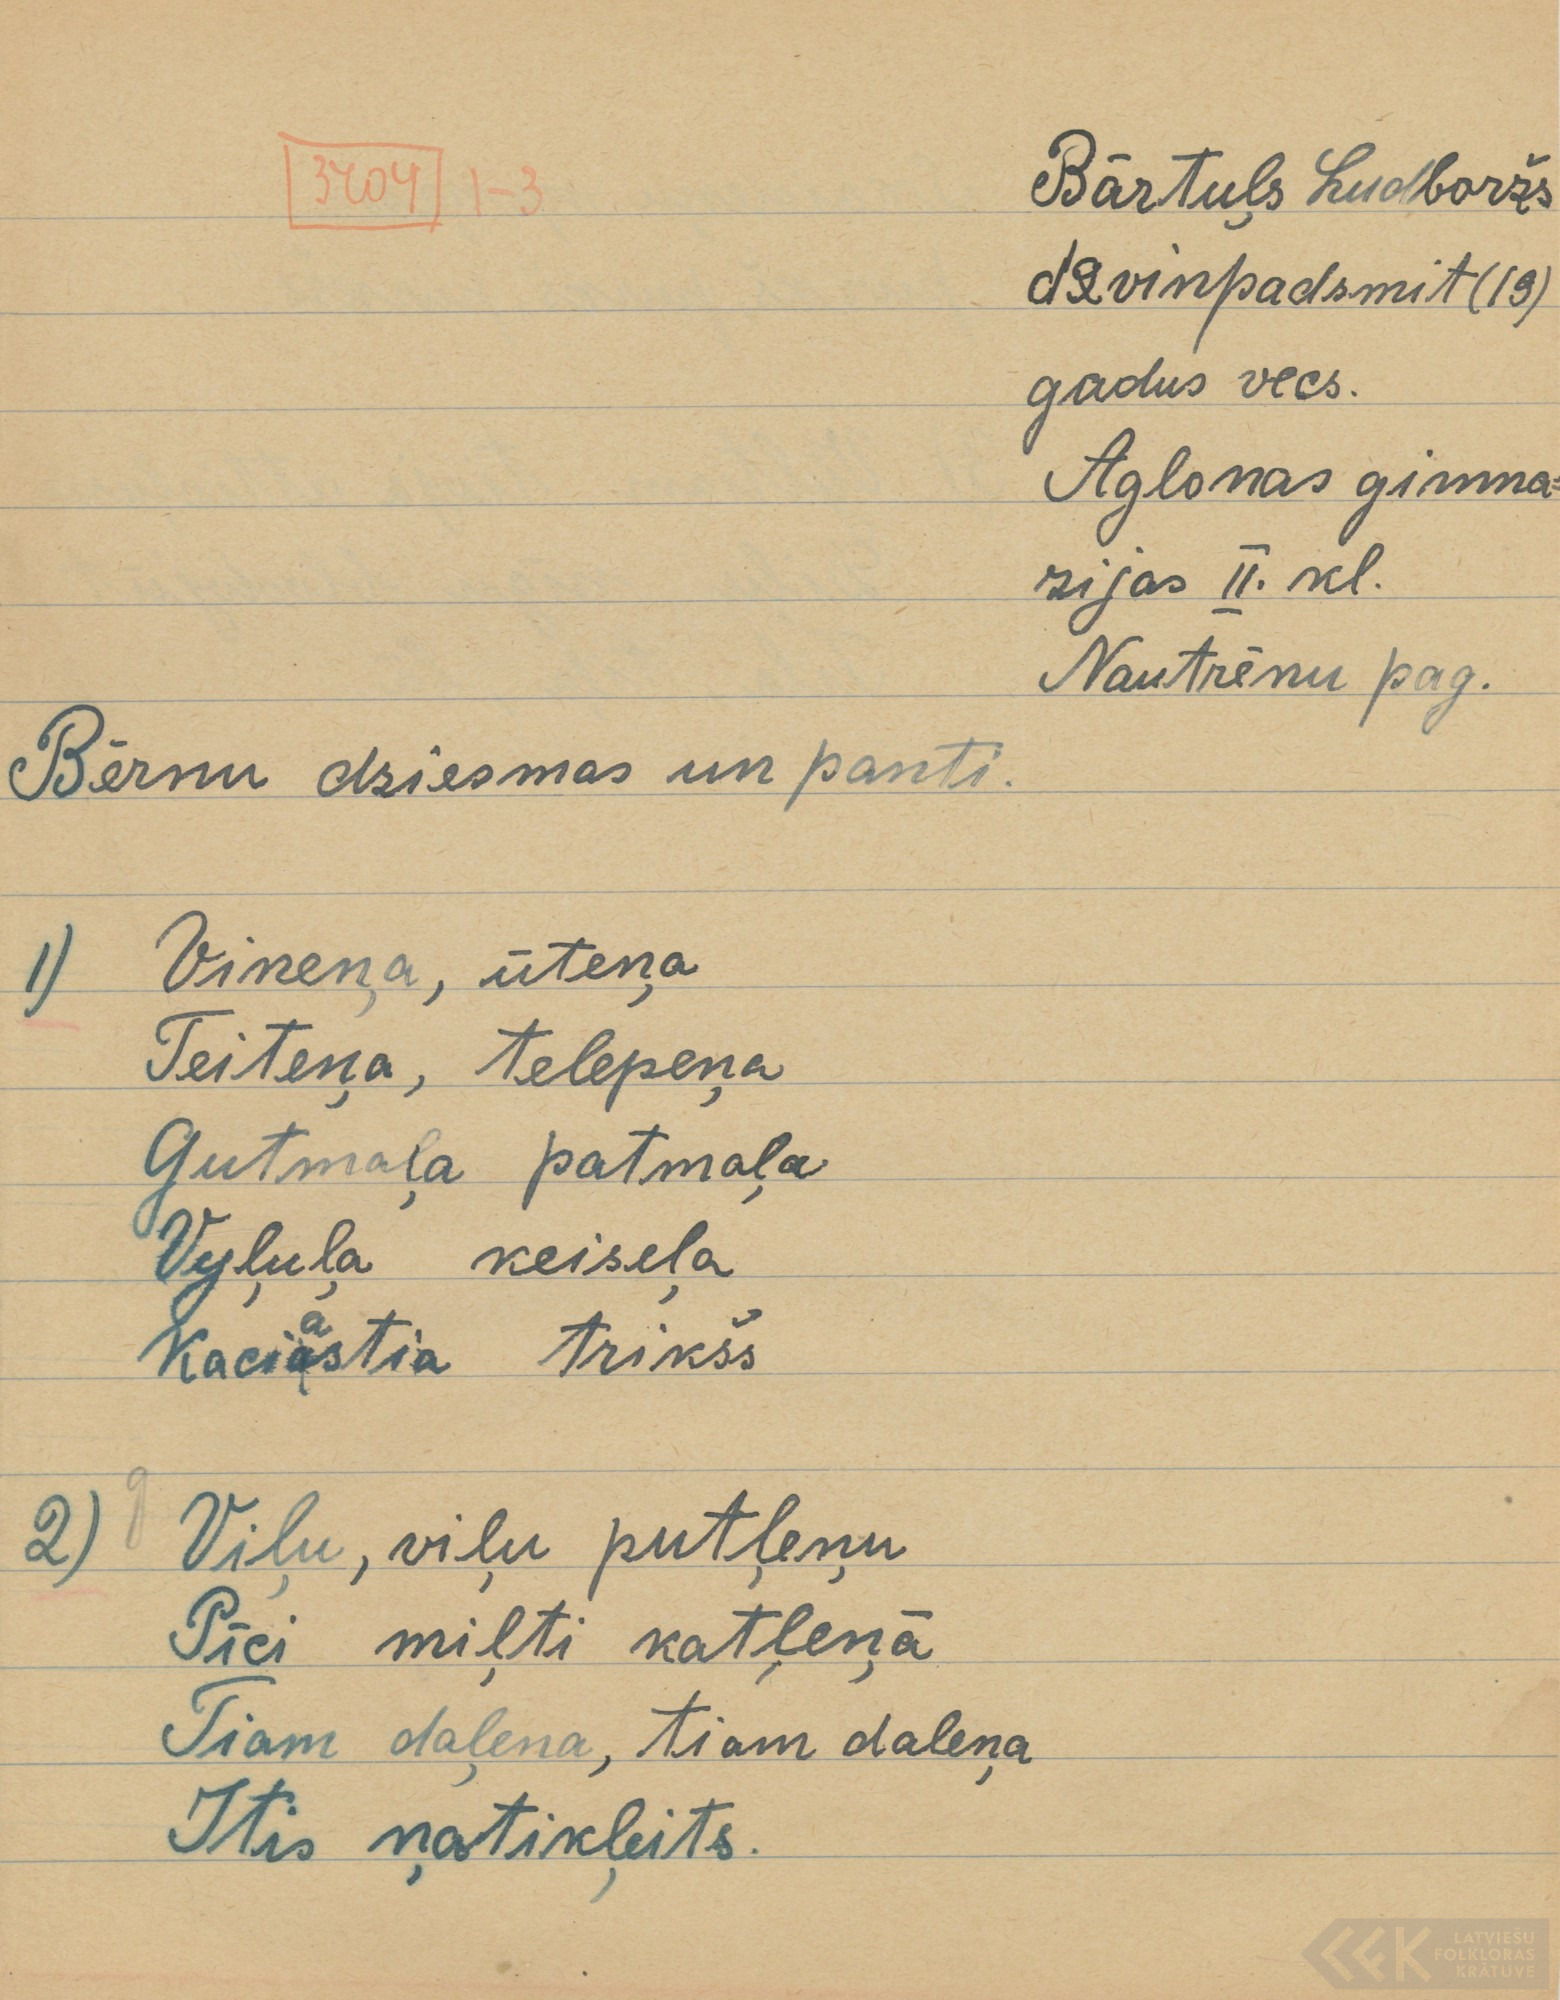 3704 1-3
Bārtuļs Ludboržs
devinpadsmit (19)
gadus vecs.
Aglonas gimna=
zijas II. kl.
Nautrēnu pag.
Bērnu dziesmas un panti.
1) Vineņa, ūteņa
Teiteņa, telepeņa
Gutmaļa patmaļa
Vyļuļa keiseļa
Kaciastia trikšs
2) Viļu, viļu putļeņu
Pīci miļti katļeņā
Tiam daļena, tiam daleņa
Itis ņatikļeits.
LATVIEŠU
FOLKLORAS
KRĀTUVE